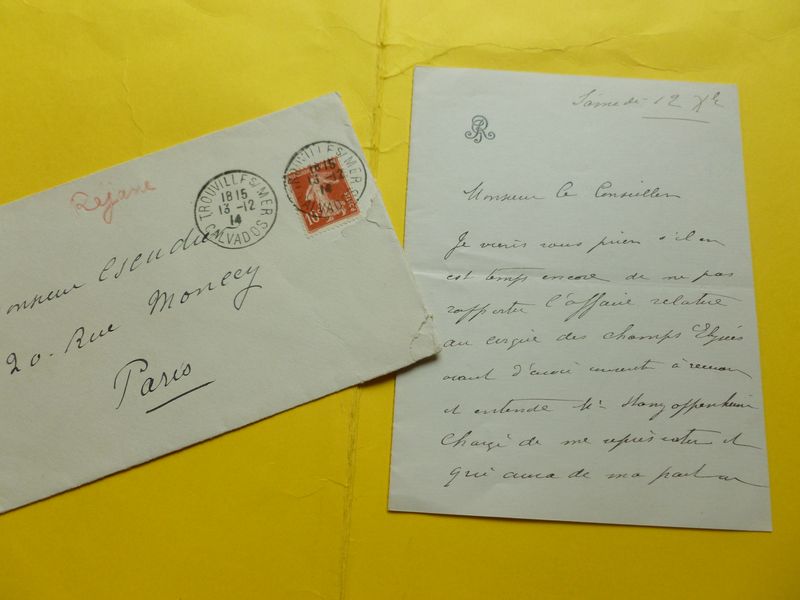 Réjane
TROUVILLE S/ MER
18 15
13 -12
14
CALVADOS
TROUVILLE S/ MER
18 15
13 -12
14
CALVADOS
10
Monsieur Escudier
20. Rue Moncey
Paris
Samedi 12 Xbre
R
Monsieur le Conseiller
Je viens vous prier s'il en
est temps encore de ne pas
rapporter l'affaire relative
au cirque des champs Elysées
avant d'avoir consenti à recevoir
et entendre Mr Stany Oppenheim
chargé de me représenter et
qui aura de ma part